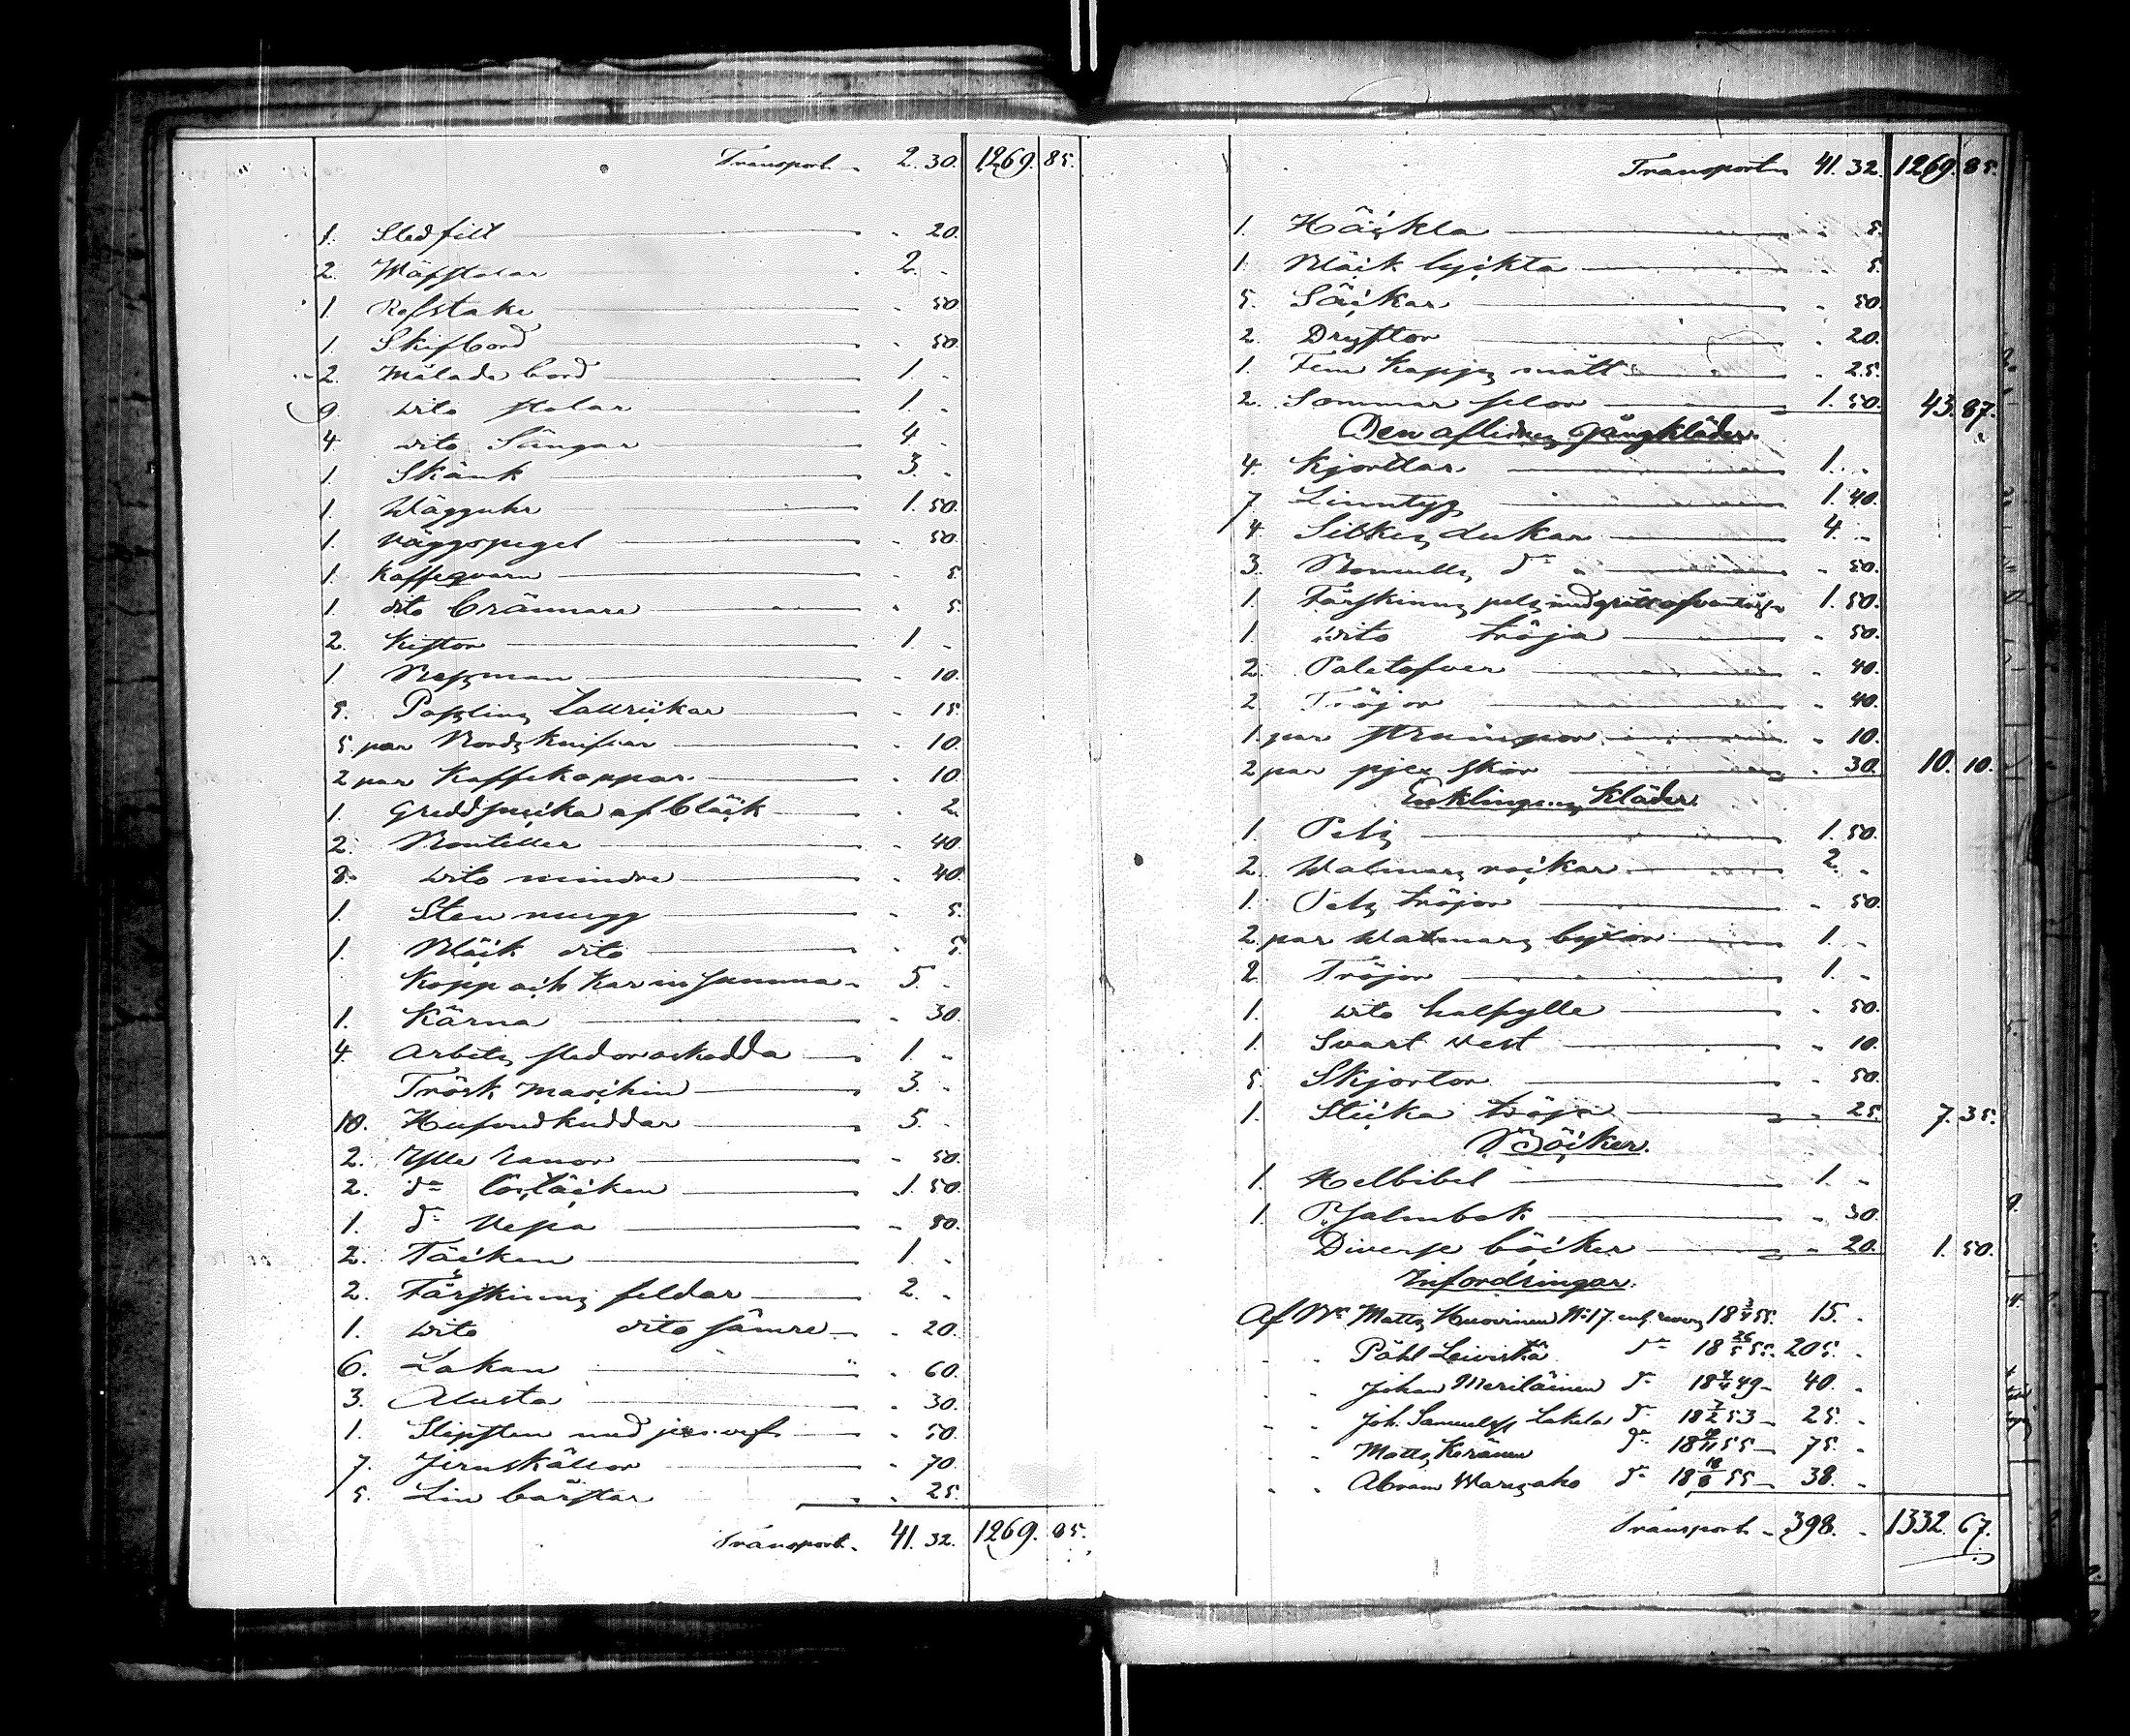 Transport - 2. 30. 1269. 85.
1. Sledfilt - 20.
2. Wäfstolar 2. -
1. Refstake - 50.
1. Skifbord - 50.
2. Målade bord 1. -
9. dito stolar 1. -
4. dito Sängar 4. -
1. Skänk 3. -
1. Wägguhr 1. 50.
1. Väggspegel - 50.
1. Kaffeqvarn - 5.
1. dito brännare - 5.
2. Kistor 1. -
1. Betzman - 10.
5. Poslins tallrickar - 15.
5. par Bordsknifvar - 10.
2 par Kaffekoppar - 10.
1. Gredd af bläck - 2.
2. Bouteller - 40.
8. dito mindre - 40.
1. Sten mugg - 5.
1. Bläck dito - 5.
Kopp och Kar in summa - 5. -
1. Kärna - 30.
4. Arbets sledor oskodda 1. -
Trösk Maschin 3. -
10. Hufvudkuddar 5. -
2. Ylle ranor - 50.
2. do täcken 1. 50.
1. do Vepa - 50.
2. Täcken 1. -
2. Fårskinns feldar 2. -
1. dito dito sämre - 20.
6. Lakan - 60.
3. Alusta - 30.
1. Slipsten med jern vef - 50.
7. Jernskällor - 70.
5. Lin börstar - 25.
Transport - 41. 32. 1269. 85.
Transport 41. 32. 1269. 85.
1. Häckla - 5.
1. Bläck lyckta - 5.
5. Säckar - 50.
2. Dryftor - 20.
1. Fem Kapps mått - 25.
2. Sommar selor 1. 50. 43. 87.
Den aflidnes Gångkläder.
4. Kjortlar 1. -
7. Linntyg 1. 40.
4. Silkes dukar 4. -
3. Bomulls do - 50.
1. Fårskinns pels med grått 1. 50.
1. dito tröja - 50.
2. Paletåer - 40.
2. Tröjor - 40.
1. par strumpor - 10.
2 par pjex skor - 30. 10. 10.
Enklingens Kläder.
1. Pels 1. 50.
2. Walmars rockar 2. -
1. Pels tröjor - 50.
2. par Walmars byxor 1. -
2. Tröjor 1. -
1. dito halfylle - 50.
1. Svart West - 10.
5. Skjortor - 50.
1. Sticka tröja - 25. 7. 35.
Böcker.
1. Helbibel 1. -
1. Psalmbok - 30.
Diverse böcker - 20. 1. 50.
Infordringar.
Af Bn Matts Huovinen No 17. enl. revers 18 3/4 55. 15. -
- - Påhl Leiviskä do 18 26/5 55. 205. -
- - Johan Meriläinen do 18 4/4 49 - 40. -
- - Joh. Samuelss Lakela do 18 7/2 53 - 25. -
- - Matts Keränen do 55 - 75. -
- - Abram do 18 18/8 55 - 38. -
Transport - 398. - 1332. 67.